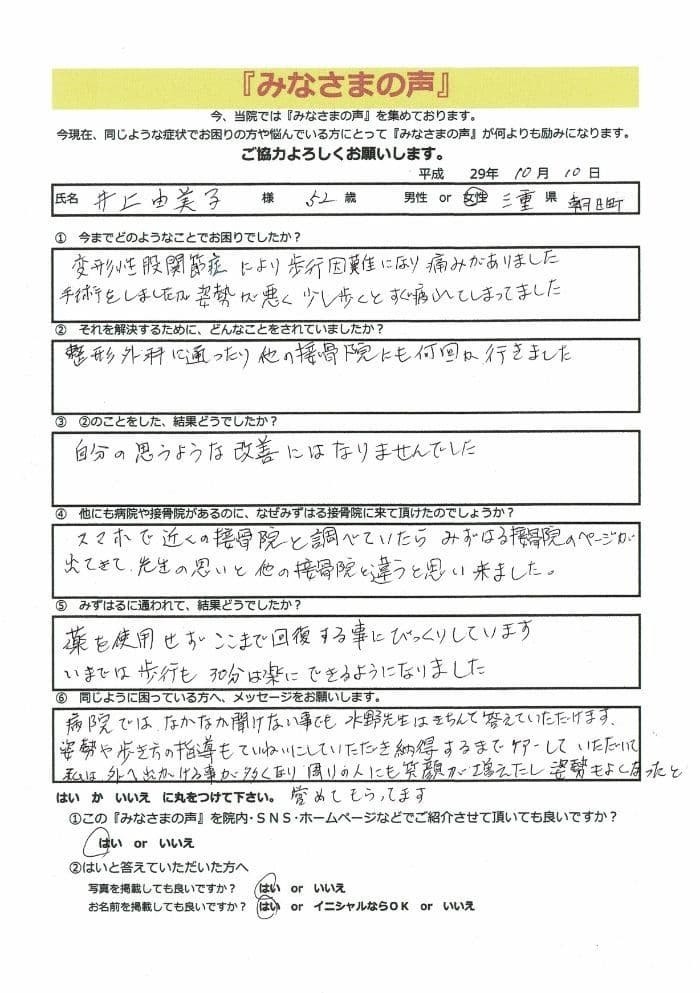 『みなさまの声』
今、当院では『みなさまの声』を集めております。
今現在、同じような症状でお困りの方や悩んでいる方にとって『みなさまの声』が何よりも励みになります。
ご協力よろしくお願いします。
平成 29年 10月 10日
氏名 井上由美子 様 52歳 男性 or 女性 三重県 朝日町
① 今までどのようなことでお困りでしたか？
変形性股関節症により歩行困難になり痛みがありました
手術をしましたが姿勢が悪く少し歩くとすぐ疲れてしまってました
② それを解決するために、どんなことをされていましたか？
整形外科に通ったり他の接骨院にも何回か行きました
③ ②のことをした、結果どうでしたか？
自分の思うような改善にはなりませんでした
④ 他にも病院や接骨院があるのに、なぜみずはる接骨院に来て頂けたのでしょうか？
スマホで近くの接骨院と調べていたらみずはる接骨院のページが
出てきて、先生の思いと他の接骨院と違うと思い来ました。
⑤ みずはるに通われて、結果どうでしたか？
薬を使用せずここまで回復する事にびっくりしています
いまでは歩行も30分は楽にできるようになりました
⑥ 同じように困っている方へ、メッセージをお願いします。
病院では、なかなか聞けない事でも水野先生はきちんと答えていただけます、
姿勢や歩き方の指導もていねいにしていただき納得するまでケアーしていただいて
私は外へ出かける事が多くなり周りの人にも笑顔が増えたし姿勢もよくなったと
はい か いいえ に丸をつけて下さい。 誉めてもらってます
①この『みなさまの声』を院内・SNS・ホームページなどでご紹介させて頂いても良いですか？
はい or いいえ
②はいと答えていただいた方へ
写真を掲載しても良いですか？ はい or いいえ
お名前を掲載しても良いですか？ はい or イニシャルならOK or いいえ